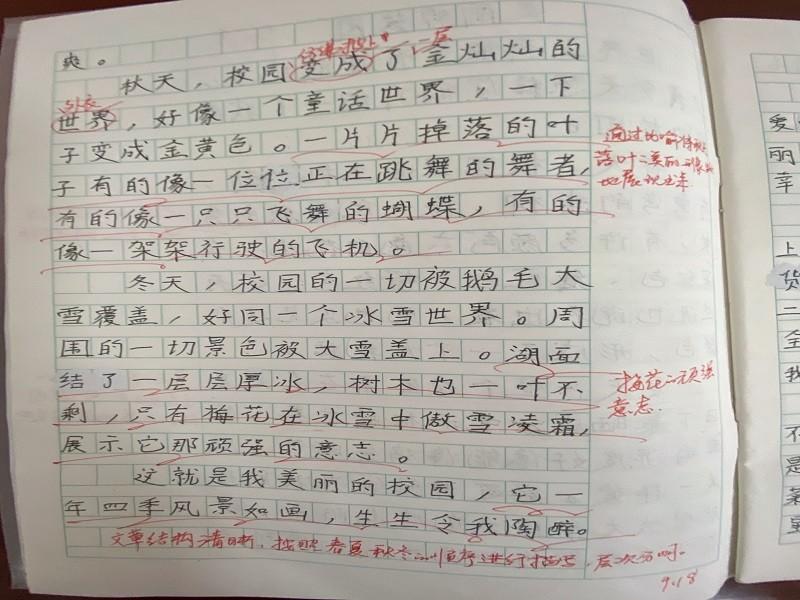 爽。
一层
秋天，校园变成了金灿灿的
外衣
世界，好像一个童话世界，一下
子变成金黄色。一片片掉落的叶
子有的像一位位正在跳舞的舞者，
有的像一只只飞舞的蝴蝶，有的
像一架架行驶的飞机。
通过比喻
落叶
地展现出来
冬天，校园的一切被鹅毛大
雪覆盖，好同一个冰雪世界。周
围的一切景色被大雪盖上。湖面
结了一层层厚冰，树木也一叶不
剩，只有梅花在冰雪中傲雪凌霜，
展示它那顽强的意志。
梅花的顽强
意志。
这就是我美丽的校园，它一
年四季风景如画，生生令我陶醉。
文章结构清晰，按照春夏秋冬的顺序进行描写，层次分明。
9.18
爱
丽
幸
上
货
二
全
我
不
是